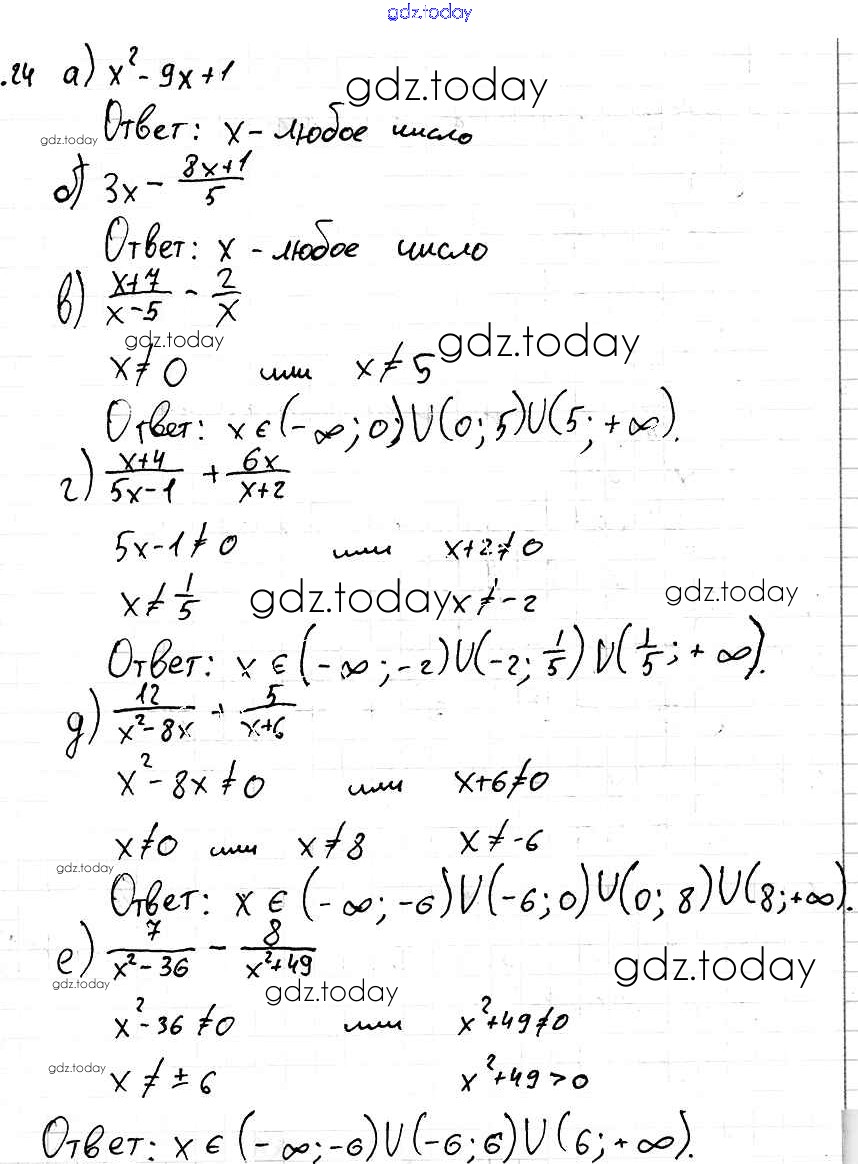 gdz.today
.24 а) x² - 9x + 1
gdz.today
Ответ: x - любое число
gdz.today
б) 3x - (8x+1)/5
Ответ: x - любое число
в) (x+7)/(x-5) - 2/x
gdz.today
gdz.today
x ≠ 0 или x ≠ 5
Ответ: x ∈ (-∞; 0) ∪ (0; 5) ∪ (5; +∞).
г) (x+4)/(5x-1) + 6x/(x+2)
5x-1 ≠ 0 или x+2 ≠ 0
x ≠ 1/5 x ≠ -2
gdz.today
gdz.today
Ответ: x ∈ (-∞; -2) ∪ (-2; 1/5) ∪ (1/5; +∞).
д) 12/(x²-8x) + 5/(x+6)
x² - 8x ≠ 0 или x+6 ≠ 0
x ≠ 0 или x ≠ 8 x ≠ -6
gdz.today
Ответ: x ∈ (-∞; -6) ∪ (-6; 0) ∪ (0; 8) ∪ (8; +∞).
е) 7/(x²-36) - 8/(x²+49)
gdz.today
gdz.today
gdz.today
x² - 36 ≠ 0 или x² + 49 ≠ 0
gdz.today
x ≠ ± 6 x² + 49 > 0
Ответ: x ∈ (-∞; -6) ∪ (-6; 6) ∪ (6; +∞).